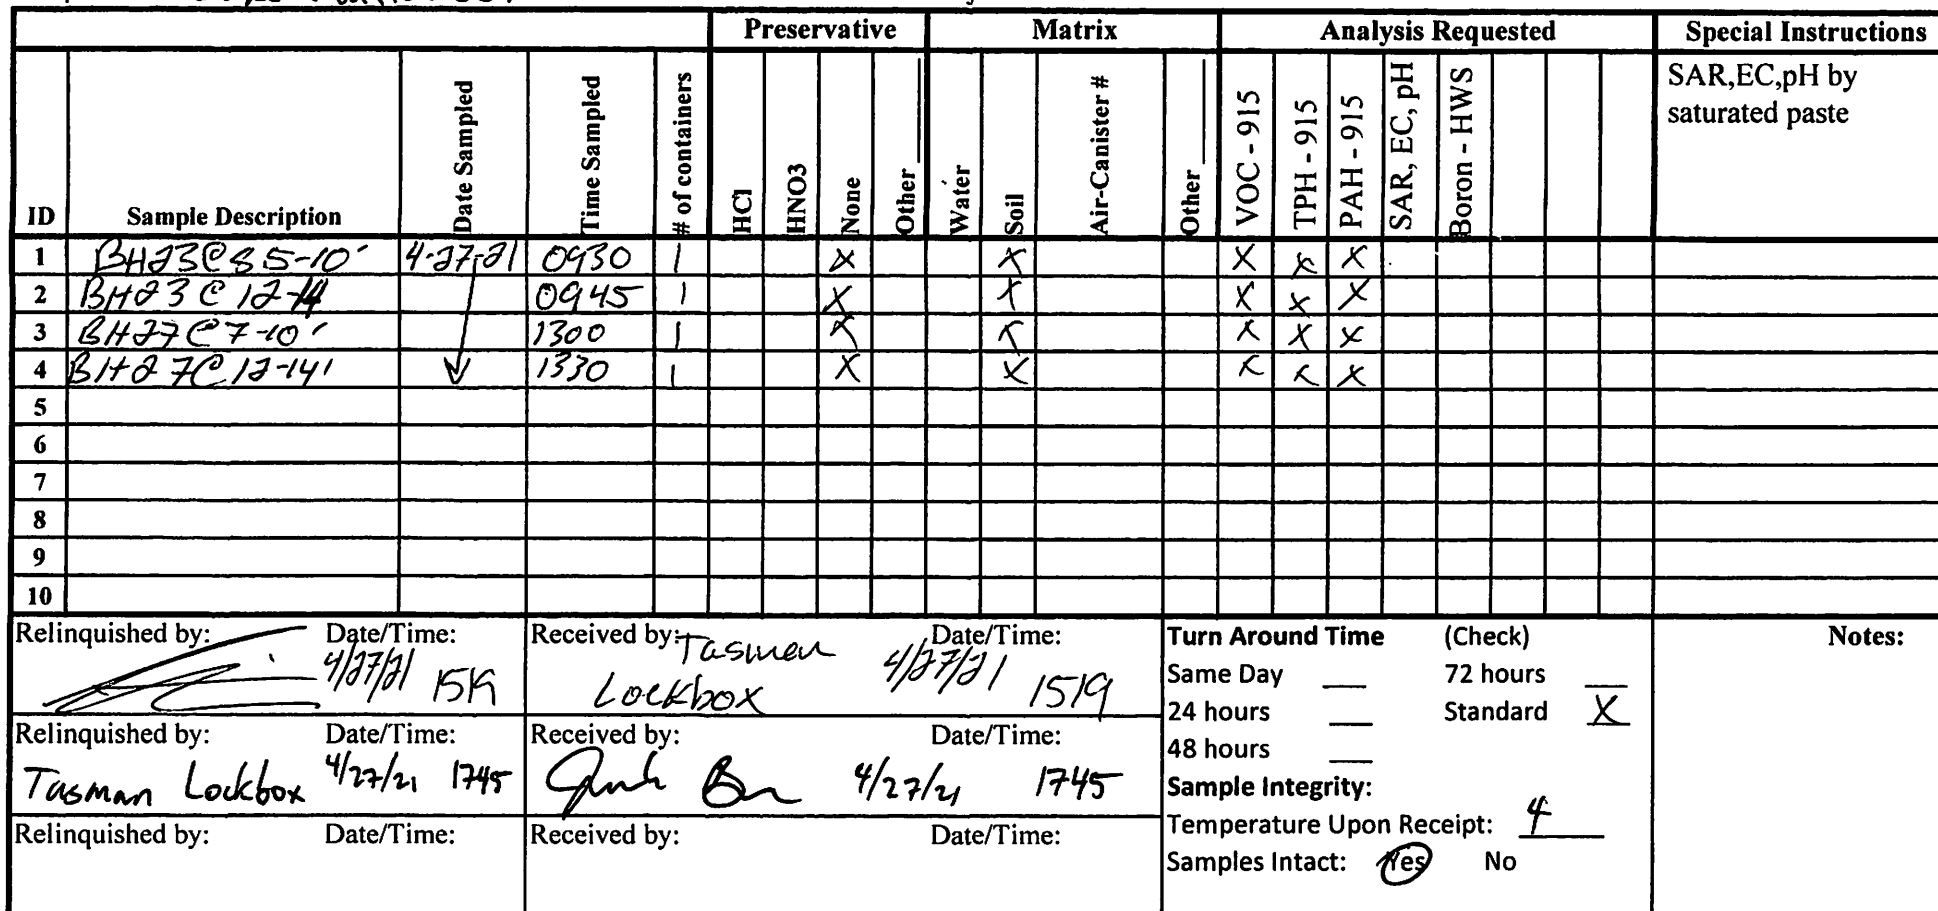 Preservative Matrix Analysis Requested Special Instructions
ID Sample Description Date Sampled Time Sampled # of containers HCl HNO3 None Other ___ Water Soil Air-Canister # Other ___ VOC - 915 TPH - 915 PAH - 915 SAR, EC, pH Boron - HWS
SAR,EC,pH by
saturated paste
1 BH23@8.5-10' 4-27-21 0930 1 X X X X X
2 BH23@12-14 0945 1 X X X X X
3 BH27@7-10' 1300 1 X X X X X
4 BH27@12-14' 1330 1 X X X X X
5
6
7
8
9
10
Relinquished by: Date/Time: Received by: Date/Time:
4/27/21 1519 Tasman Lockbox 4/27/21 1519
Relinquished by: Date/Time: Received by: Date/Time:
Tasman Lockbox 4/27/21 1745 4/27/21 1745
Relinquished by: Date/Time: Received by: Date/Time:
Turn Around Time (Check)
Same Day ___ 72 hours ___
24 hours ___ Standard X
48 hours ___
Sample Integrity:
Temperature Upon Receipt: 4
Samples Intact: Yes No
Notes: